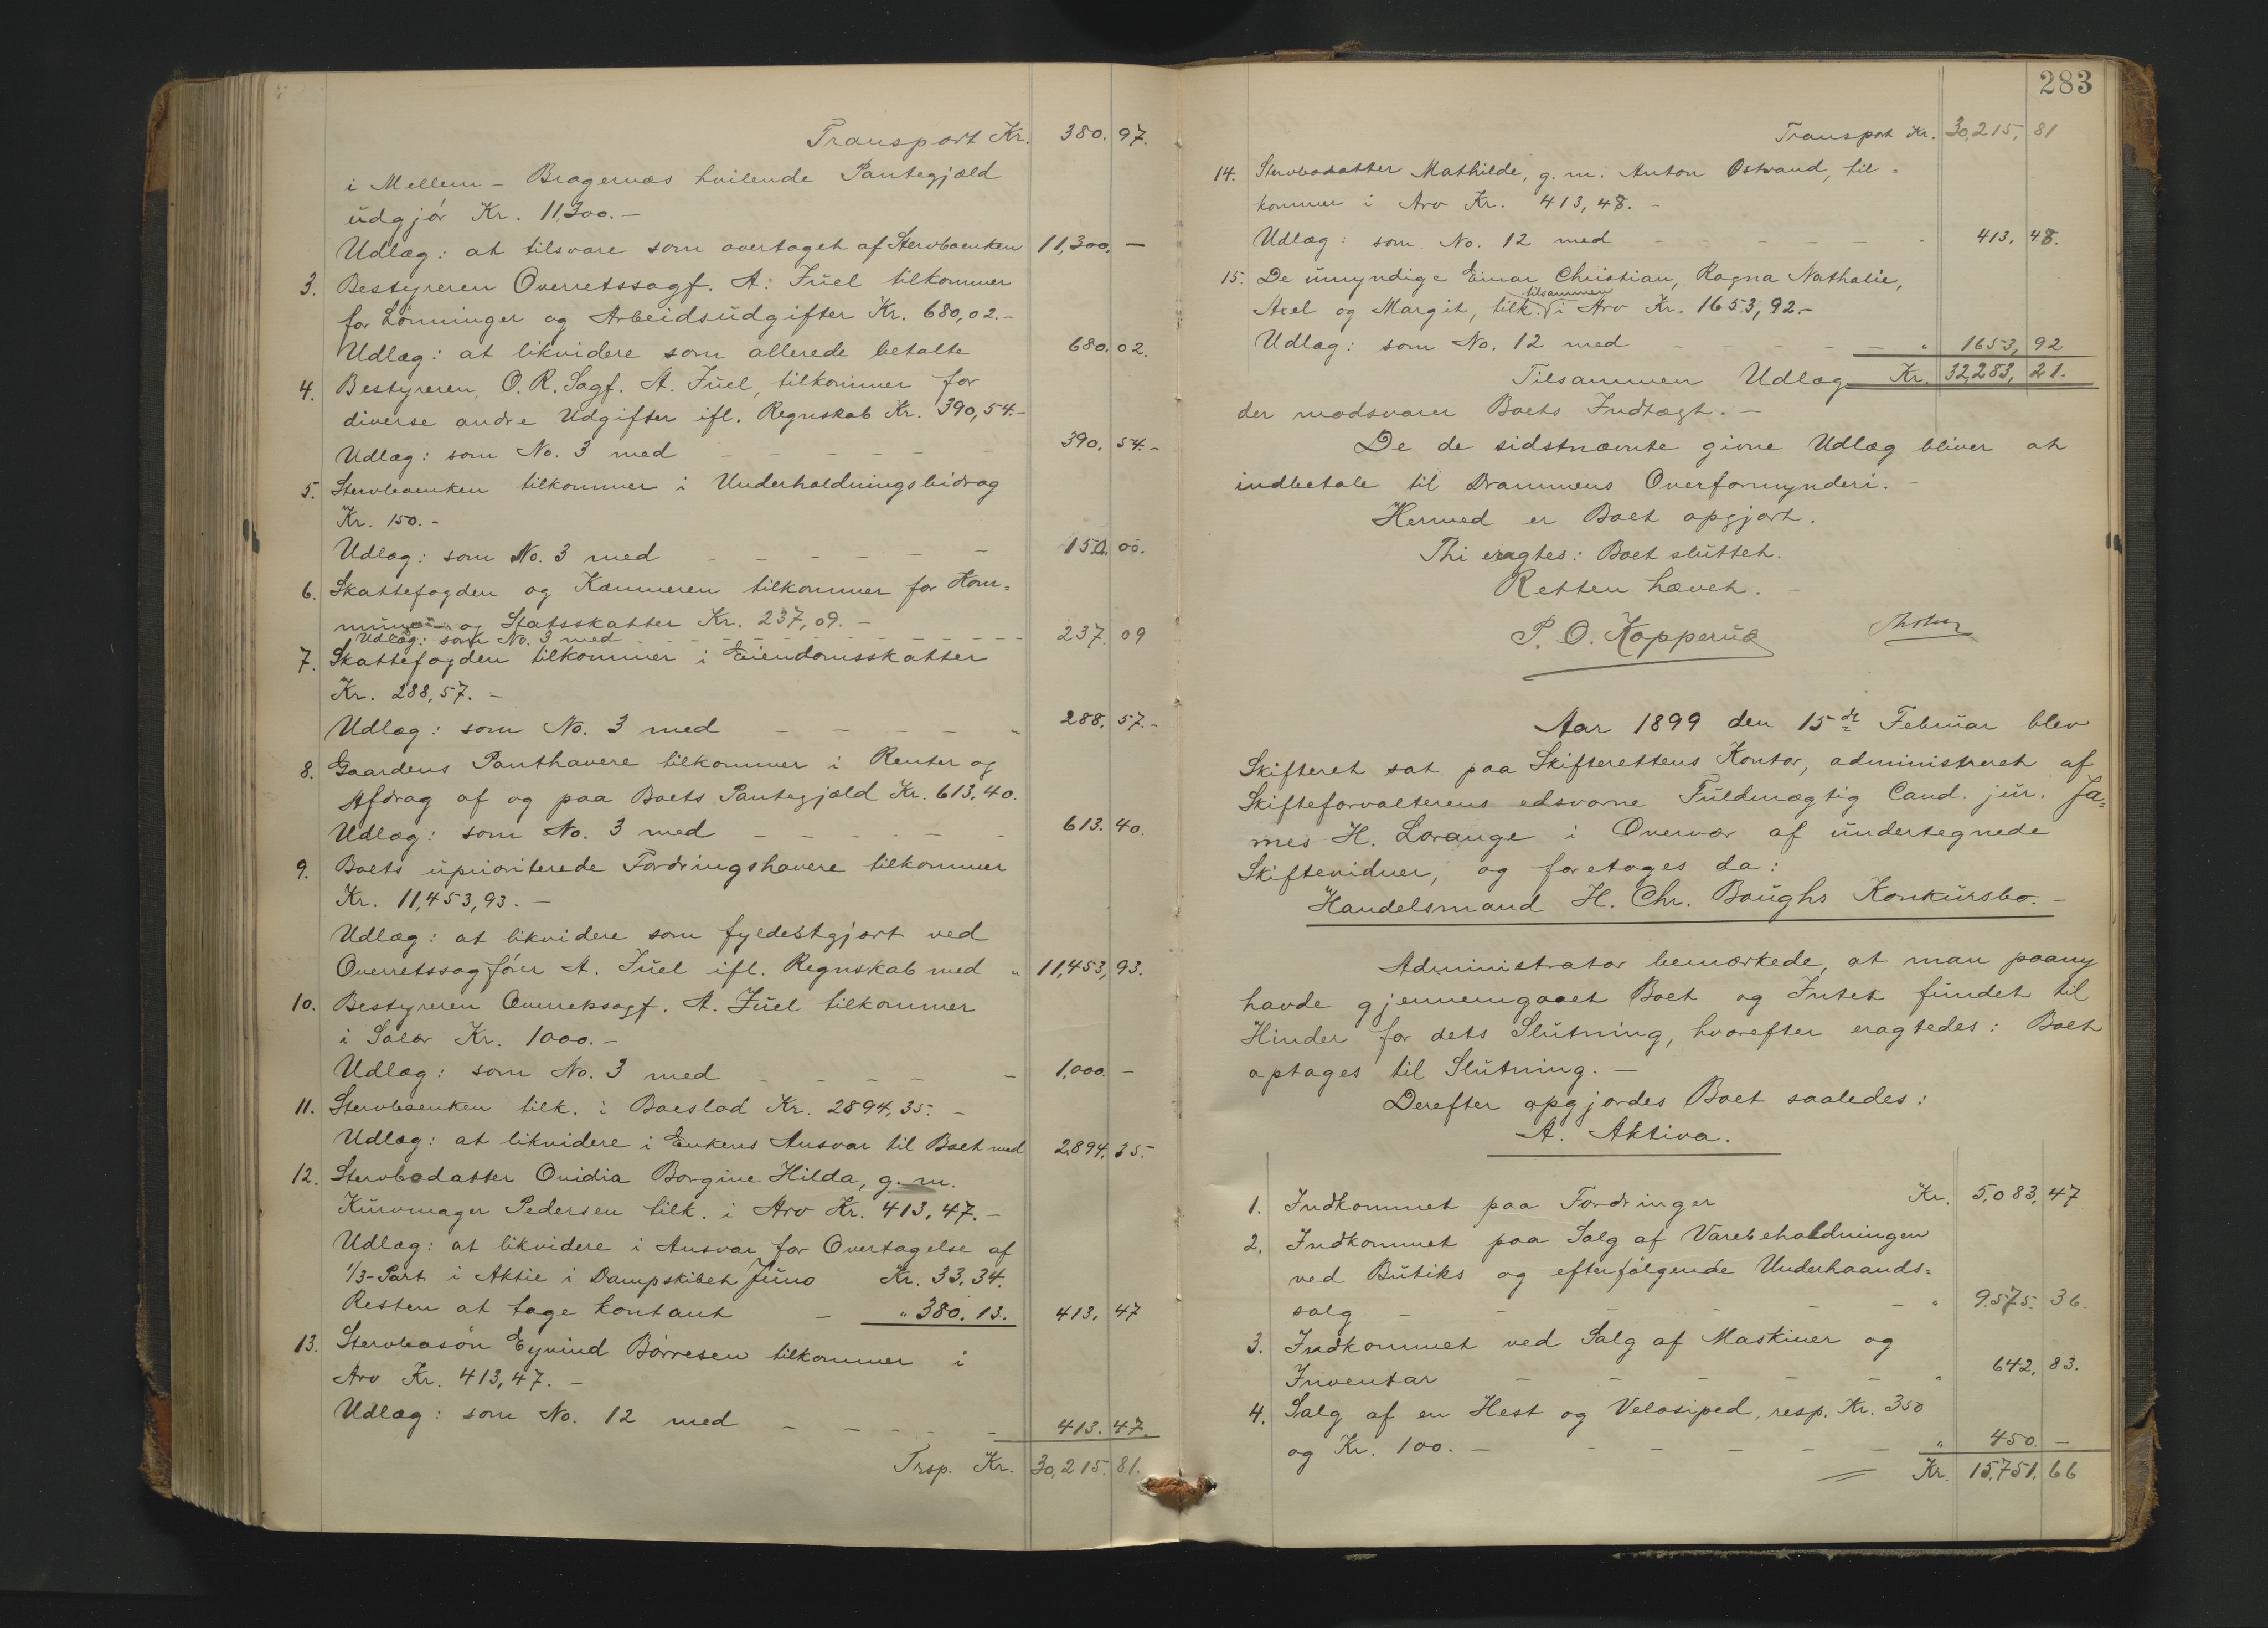 Transport Kr. 380. 97.
i Mellem - Bragernæs hvilende Pantegjæld
udgjör Kr. 11,300. -
Udlæg: at tilsvare som overtaget af Stervboenken 11,300. -
3. Bestyreren Overretssagf. A. Juel tilkommer
for Lönninger og Arbeidsudgifter Kr. 680,02. -
Udlæg: at likvidere som allerede betalte 680. 02.
4. Bestyreren, O. R. Sagf. A. Juel, tilkommer for
diverse andre Udgifter ifl. Regnskab Kr. 390,54. -
Udlæg: som No. 3 med - - - - - - 390. 54. -
5. Stervboenken tilkommer i Underholdningsbidrag
Kr. 150. -
Udlæg: som No. 3 med - - - - - - 150. 00.
6. Skattefogden og Kæmneren tilkommer for Kom=
mune- og Statsskatter Kr. 237,09. -
Udlæg: som No. 3 med - - - - - - 237. 09
7. Skattefogden tilkommer i Eiendomsskatter
Kr. 288,57. -
Udlæg: som No. 3 med - - - - " 288. 57. -
8. Gaardens Panthavere tilkommer i Renter og
Afdrag af og paa Boets Pantegjæld Kr. 613,40.
Udlæg: som No. 3 med - - - - - - 613. 40.
9. Boets uprioriterede Fordringshavere tilkommer
Kr. 11,453,93. -
Udlæg: at likvidere som fyldestgjort ved
Overretssagförer A. Juel ifl. Regnskab med " 11,453, 93.
10. Bestyreren Overretssagf. A. Juel tilkommer
i Salær Kr. 1000. -
Udlæg: som No. 3 med - - - - - 1,000. -
11. Stervboenken tilk. i Boeslod Kr. 2894,35. -
Udlæg: at likvidere i Enkens Ansvar til Boet med 2,894. 35. -
12. Stervbodatter Ovidia Borgine Hilda, g. m.
Kurvmager Pedersen tilk. i Arv Kr. 413,47. -
Udlæg: at likvidere i Ansvar for Overtagelse af
1/3-Part i Aktie i Dampskibet Juno Kr. 33,34.
Resten at tage kontant - " 380.13. 413. 47
13. Stervbosön Eyvind Börresen tilkommer i
Arv Kr. 413,47. -
Udlæg: som No. 12 med - - - - - 413. 47.
Trsp. Kr. 30,215. 81.
283
Transport Kr. 30,215, 81
14. Stervbodatter Mathilde, g. m. Anton Östvand, til-
kommer i Arv Kr. 413,48. -
Udlæg: som No. 12 med - - - - - - 413. 48.
15. De umyndige Einar Christian, Ragna Nathalie,
Axel og Margit, tilk. tilsammen i Arv Kr. 1653,92. -
Udlæg: som No. 12 med - - - - - " 1653, 92
Tilsammen Udlæg Kr. 32,283, 21.
der modsvarer Boets Indtægt. -
De de sidstnævnte givne Udlæg bliver at
indbetale til Drammens Overformynderi. -
Hermed er Boet opgjort.
Thi eragtes: Boet sluttet.
Retten hævet. -
P. O. Kopperud
Aar 1899 den 15de Februar blev
Skifteret sat paa Skifterettens Kontor, administreret af
Skifteforvalterens edsvorne Fuldmægtig Cand. jur. Ja=
mes H. Lorange i Overvær af undertegnede
Skiftevidner, og foretoges da:
Handelsmand H. Chr. Boughs Konkursbo. -
Administrator bemærkede, at man paany
havde gjennemgaaet Boet og Intet fundet til
Hinder for dets Slutning, hvorefter eragtedes: Boet
optages til Slutning. -
Derefter opgjordes Boet saaledes:
A. Aktiva.
1. Indkommet paa Fordringer Kr. 5,083, 47
2. Indkommet paa Salg af Varebeholdningen
ved Butiks og efterfölgende Underhaands=
salg - - - - - - " 9,575. 36.
3. Indkommet ved Salg af Maskiner og
Inventar - - - - - " 642, 83.
4. Salg af en Hest og Velosiped, resp. Kr. 350
og Kr. 100. - - - - - - " 450. -
Kr. 15,751. 66